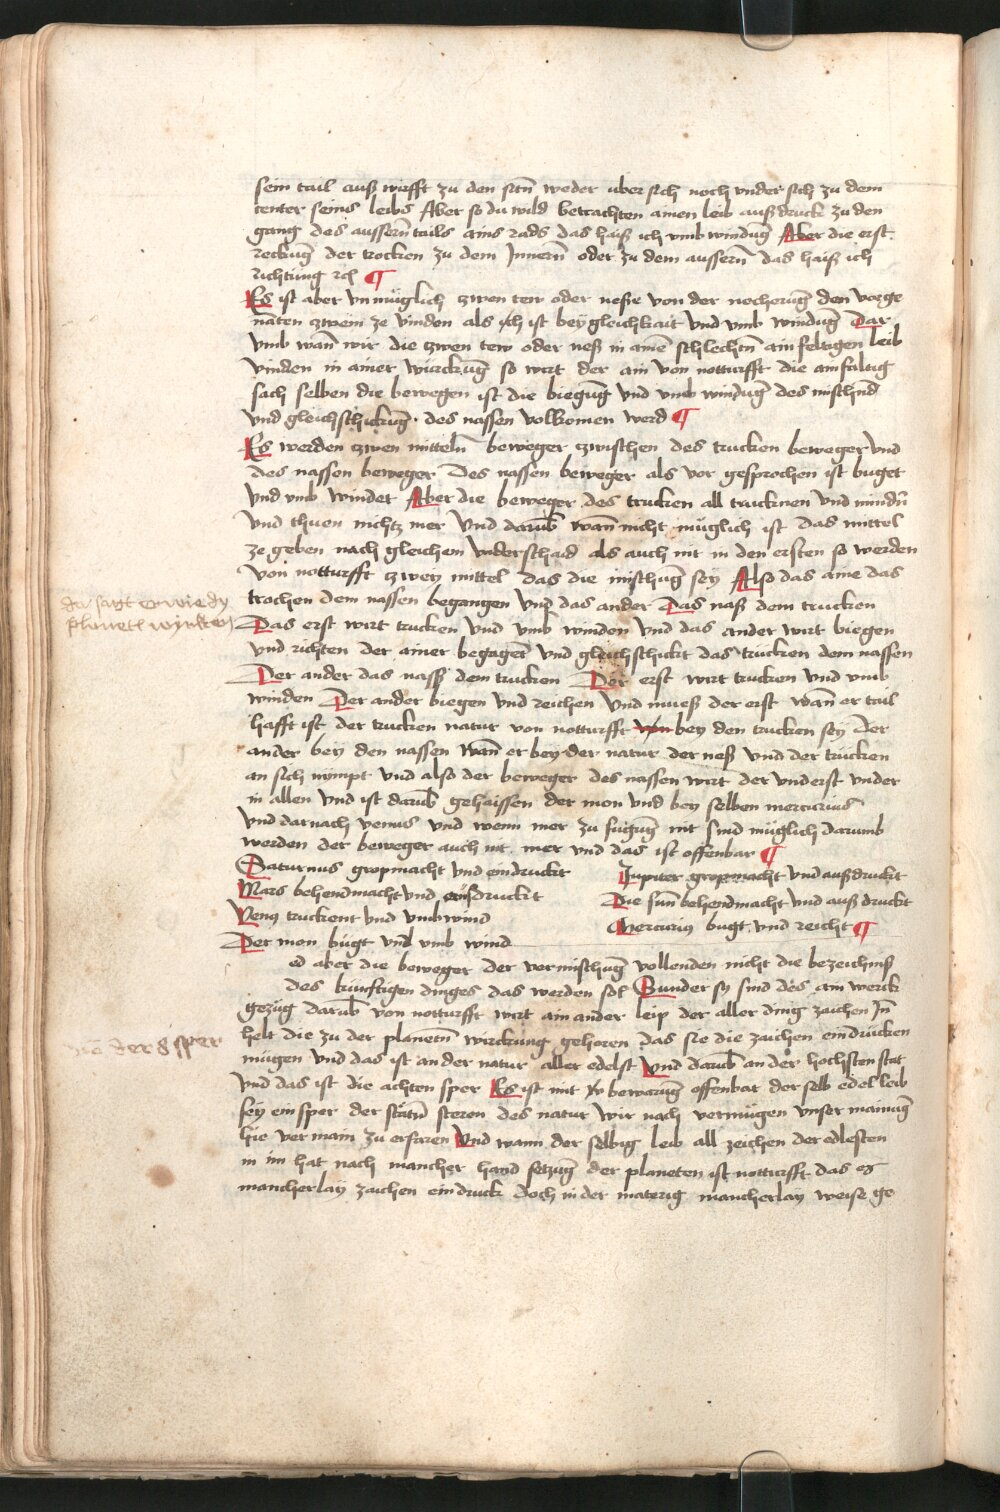 sein tail auß wirfft zu den sitn weder uber sich noch vnder sich zu dem
center seins leibs Aber so du wild betrachten ainen leib auß druck zu den
gang des aussern tails ains rads das haiß ich vmb windug Aber die erst
reckug der trocken zu dem Innern oder zu dem aussern das haiß ich
richtung rc ¶
Es ist aber vnmüglich zwen tew oder neße von der nocherug den vorge
nanten zwein ze vinden als ich ist bey gleichkait vnd vmb windug Dar
vmb wan wir die zwen tew oder neß in aine schlechtn ainfeltigen leib
vinden in ainer wurckug so wirt der ain von notturfft die ainfaltig
sach selben die bewegen ist die biegug vnd vmb windug des mischnd
vnd gleichschickug des nassen volkomen werd ¶
Es werden zwen mitteln beweger zwischen des trucken beweger vnd
des nassen beweger Des nassen beweger als vor gesprochen ist buget
vnd vmb windet Aber die beweger des trucken all trucknen vnd mindn
vnd thuen nichtz mer Vnd darub wan nicht müglich ist das mittel
ze geben nach gleichem vnderschaid als auch nit in den ersten so werden
von notturfft zwey mittel das die mischug sey Also das aine das
trochen dem nassen begangen vnd das ander Das naß dem trucken
der sagt wie dy
planeten wircken
Das erst wirt trucken vnd vmb winden vnd das ander wirt biegen
vnd richten der ainer begaget vnd gleichschickt das trucken dem nassen
Der ander das nasß dem trucken Der erst wirt trucken vnd vmb
winden Der ander biegen vnd reichen Vnd mueß der erst wan er tail
hafft ist der trucken natur von notturfft bey den trucken sey Der
ander bey den nassen wan er bey der natur der neß vnd der trucken
an sich nympt vnd also der beweger des nassen wirt der vnderst vnder
in allen vnd ist darub gehaissen der mon vnd bey selben mercurius
vnd darnach venus vnd wenn mer zu fugug nit sind müglich darumb
werden der beweger auch nit mer vnd das ist offenbar ¶
Saturnus gropmacht vnd eindruckt Jupiter gropmacht vnd außdruckt
Mars behendmacht vnd eindruckt Die sun behendmacht vnd auß druckt
Venus truckent vnd vmbwind Mercurius bugt vnd reicht ¶
Der mon bugt vnd vmb wind
ed aber die beweger der vermischug vollenden nicht die bezeichnis
des kunftigen dinges das werden sol Sunder sy sind des ain werck
gezüg darub von notturfft wirt ain ander leip der aller ding zaichen In
helt die zu der planetn wirckung gehoren das sie die zaichen eindrucken
der 8 sper
mügen vnd das ist an der natur aller edelst Vnd darub an der hochsten stat
vnd das ist die achten sper Es ist mit bewarug offenbar der selb edel leib
sey ein sper der statn steren des natur wir nach vermügen vnser mainug
hie vermain zu erfaren Vnd wann der selbig leib all zeichen der edlesten
in im hat nach mancher hand setzug der planeten ist notturfft das es
mancherlay zaichen eindruck doch in der materig mancherlay weise ge